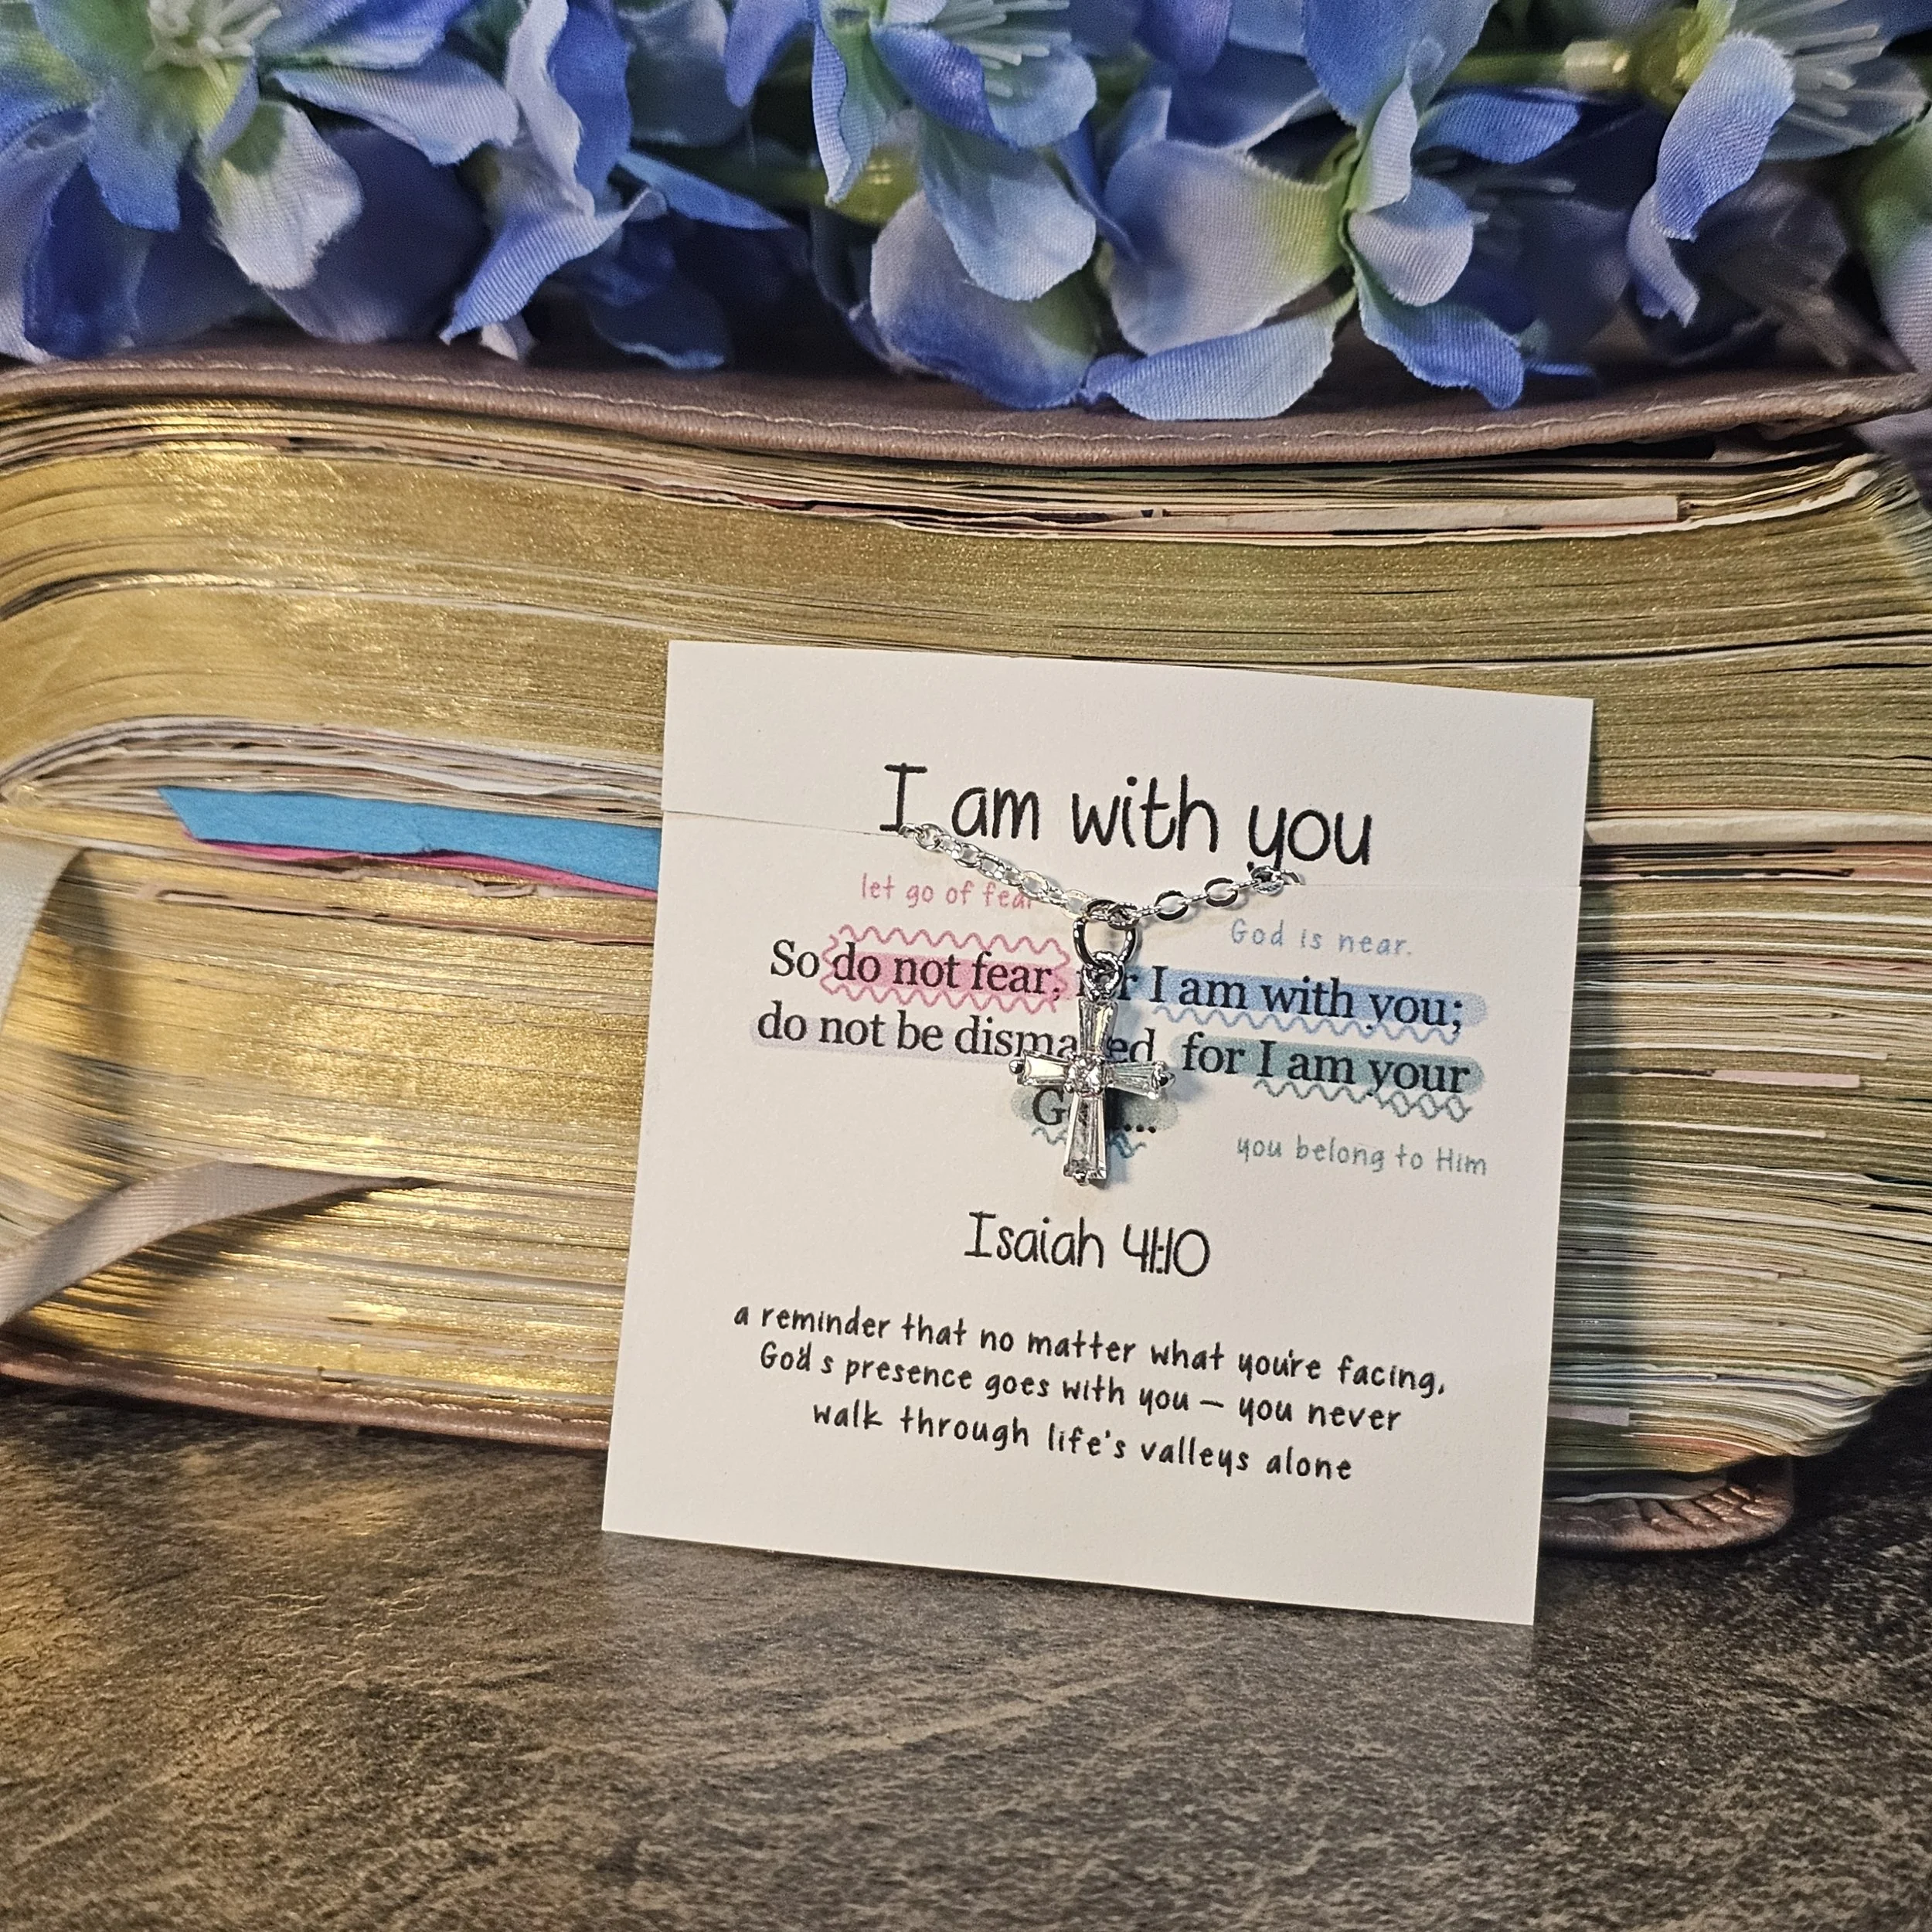 I am with you
let go of fear
God is near.
So do not fear, for I am with you;
do not be dismayed, for I am your
God...
you belong to Him
Isaiah 41:10
a reminder that no matter what you're facing,
God's presence goes with you — you never
walk through life's valleys alone